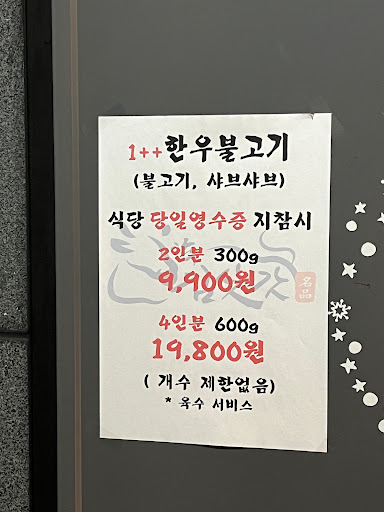 1++한우불고기
(불고기, 샤브샤브)
식당 당일영수증 지참시
2인분 300g
9,900원
名品
4인분 600g
19,800원
( 개수 제한없음)
* 육수 서비스